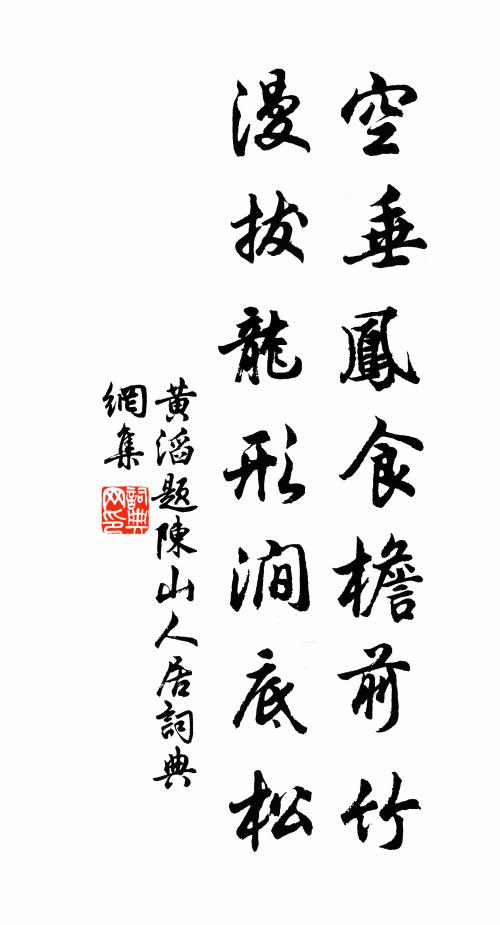 空垂鳳食檐前竹
漫拔龍形澗底松
黄滔题陳山人居詞典
網集
詞典网印